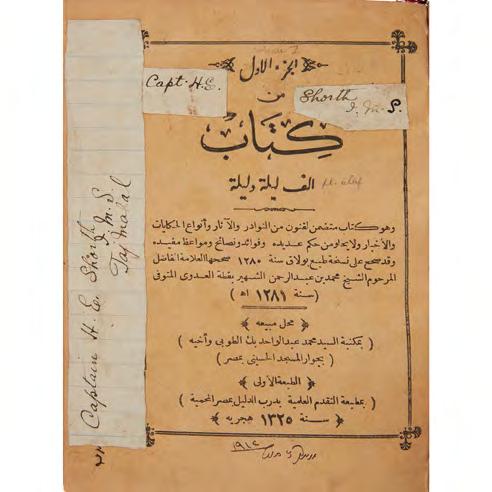 الجزء الاول
من
كتاب
الف ليلة وليلة
وهو كتاب متضمن لفنون من النوادر والآثار وأنواع الحكايات
والاخبار ولا يخلو من حكم عديده وفوائد ونصائح ومواعظ مفيده
وقد صحح على نسخة طبع بولاق سنة ١٢٨٠ صححها العلامة الفاضل
المرحوم الشيخ محمد بن عبد الرحمن الشهير بقطة العدوى المتوفى
(سنة ١٢٨١ هـ)
محل مبيعه
(بمكتبة السيد محمد عبد الواحد بك الطوبى وأخيه)
(بجوار المسجد الحسينى بمصر)
الطبعة الأولى
(بمطبعة التقدم العلمية بدرب الدليل بمصر المحمية)
سنة ١٣٢٥ هجريه
١٩١٤
Capt. H. E.
Shorth
I. M. S.
Captain H. E. Shorth
I. M. S.
Tajmahal